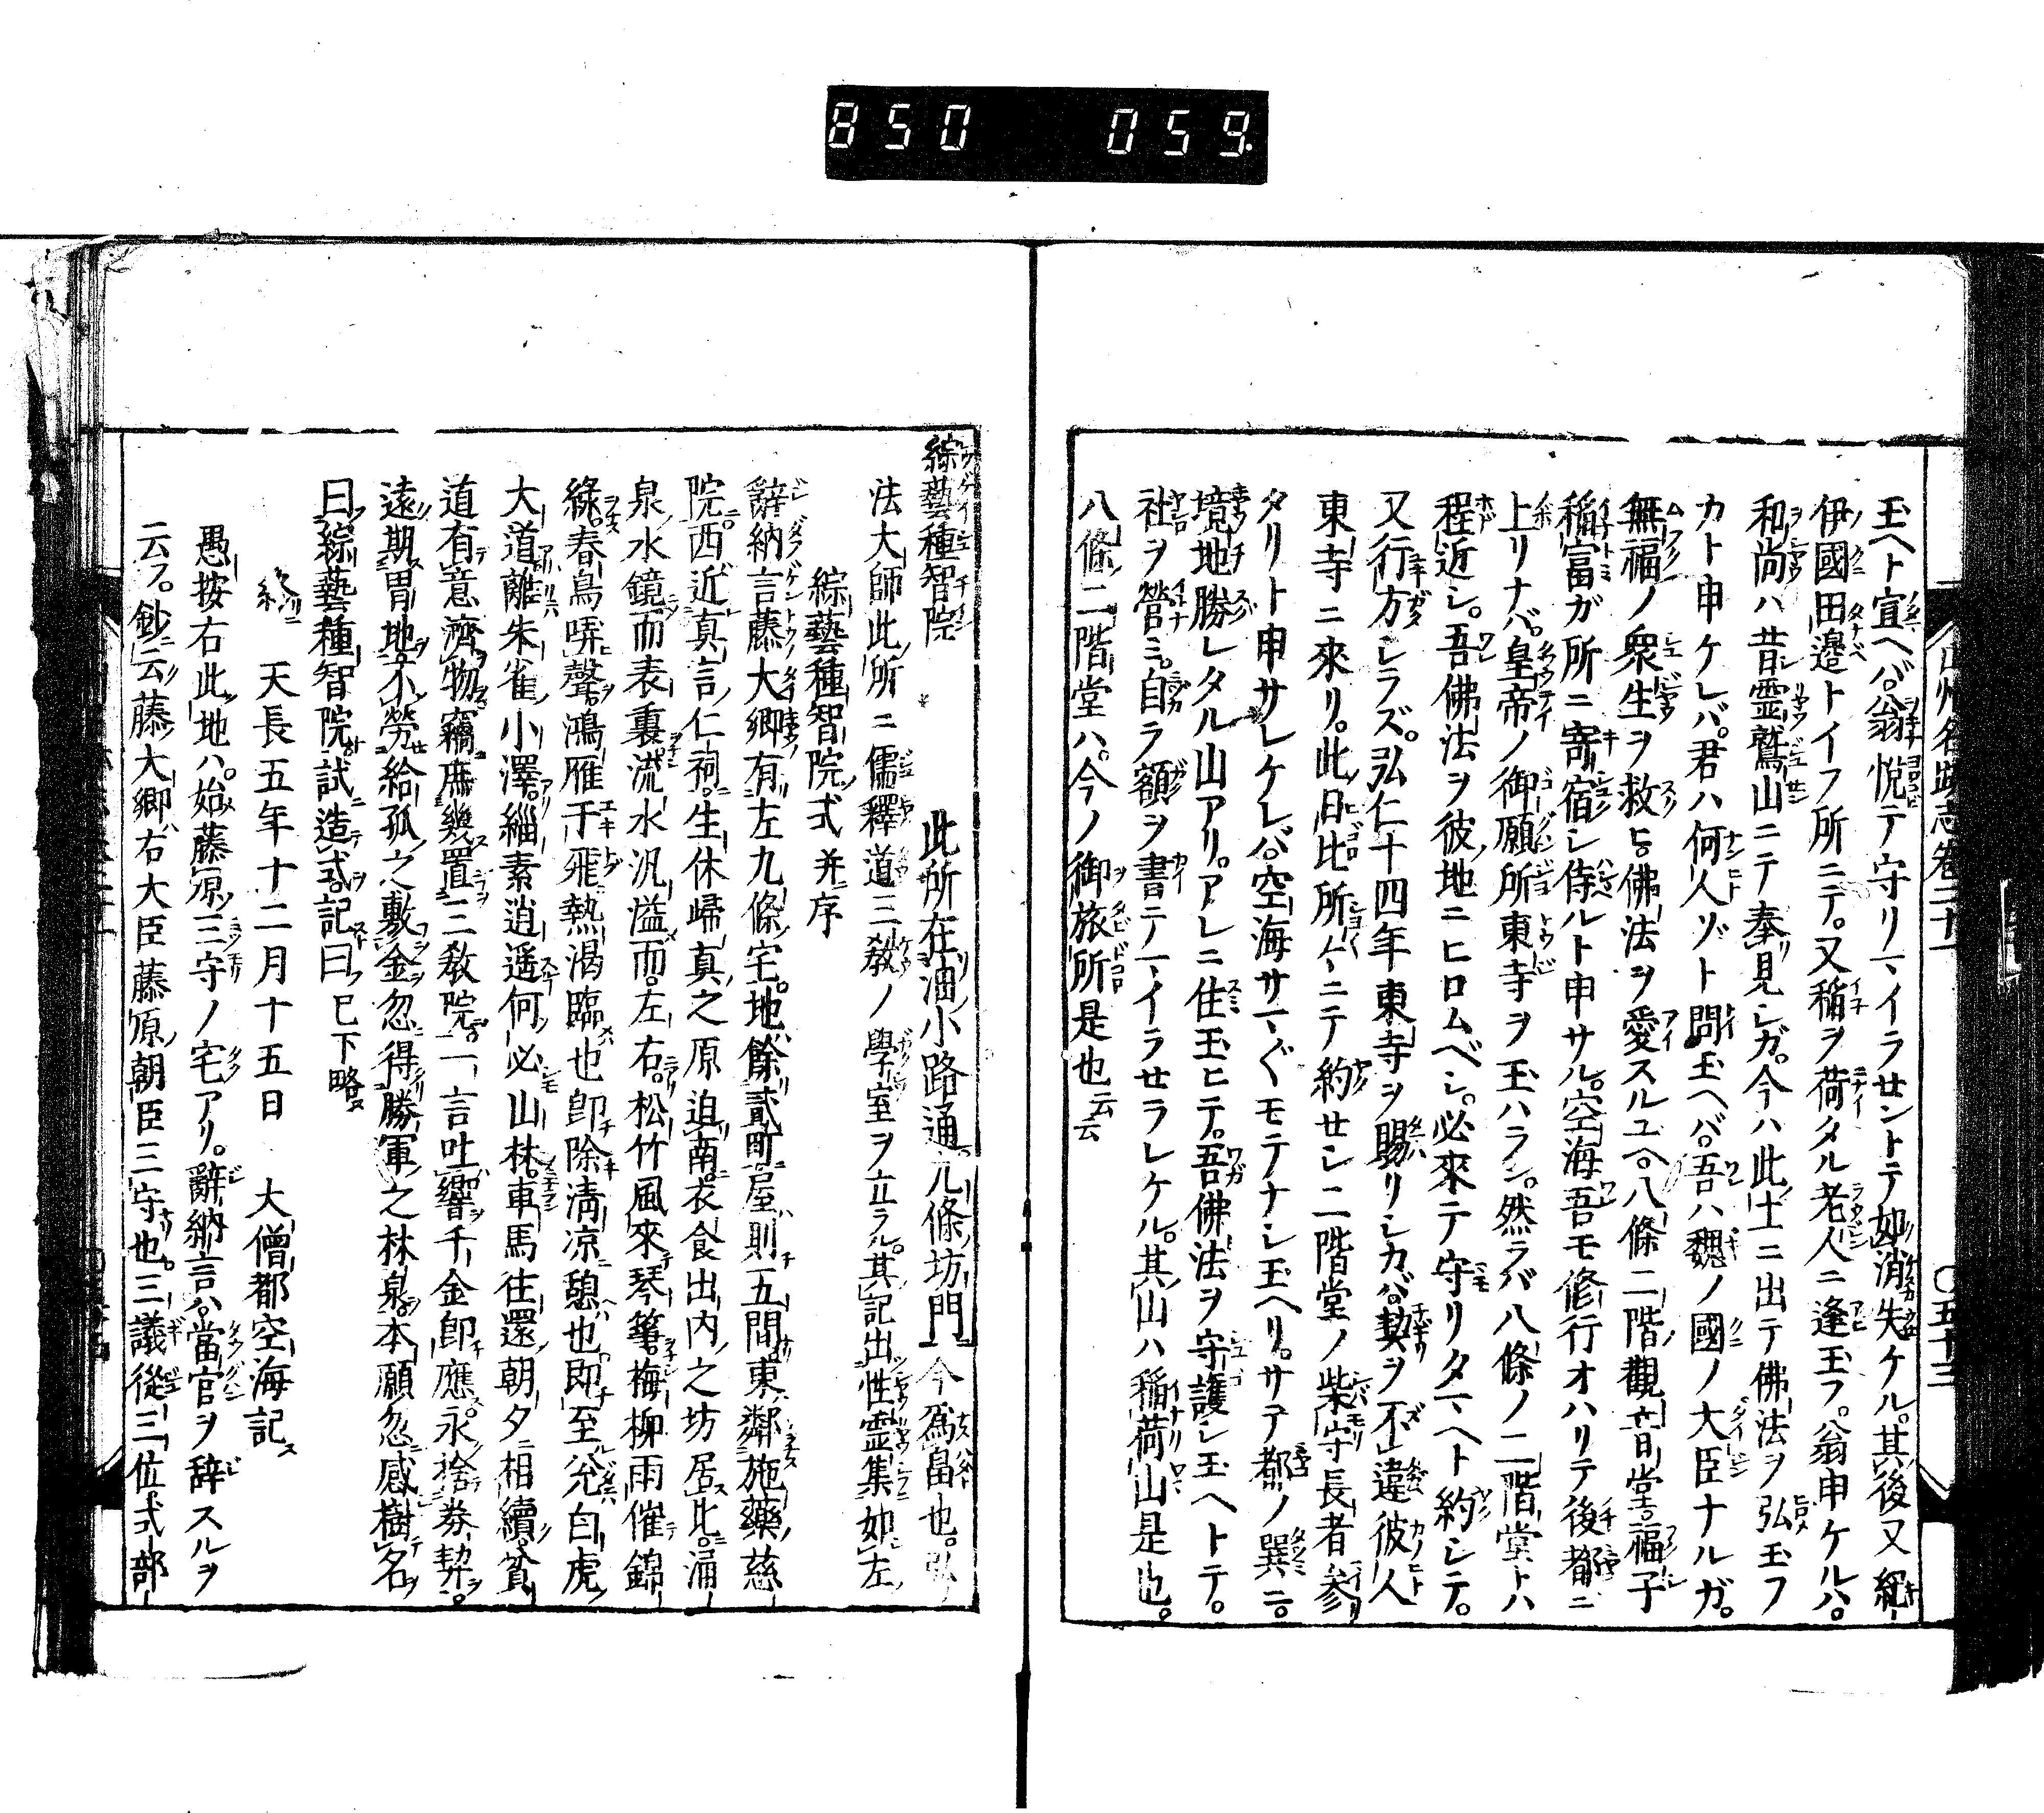 850 059
山州名跡志卷二十一 ○五十三
玉ヘト宣ヘバ。翁悦テ守リマイラセントテ如消失ケル。其後又紀
伊國田邉トイフ所ニテ。又稲ヲ荷タル老人ニ逢玉フ。翁申ケルハ。
和尚ハ昔霊鷲山ニテ奉見シガ。今ハ此土ニ出テ佛法ヲ弘玉フ
カト申ケレバ。君ハ何人ゾト問玉ヘバ。吾ハ魏ノ國ノ大臣ナルガ。
無福ノ衆生ヲ救ヒ佛法ヲ愛スルユヘ。八條二階觀音堂福子
稲富ガ所ニ寄宿シ侍ルト申サル。空海吾モ修行オハリテ後都ニ
上リナバ。皇帝ノ御願所東寺ヲ玉ハラン。然ラバ八條ノ二階堂トハ
程近シ。吾佛法ヲ彼地ニヒロムベシ。必來テ守リタマヘト約シテ。
又行方シラズ。弘仁十四年東寺ヲ賜リシカバ。契ヲ不違彼人
東寺ニ來リ。此日比所々ニテ約セシ二階堂ノ柴守長者参
タリト申サレケレバ。空海サマ〲モテナシ玉ヘリ。サテ都ノ巽ニ。
境地勝レタル山アリ。アレニ住玉ヒテ。吾佛法ヲ守護シ玉ヘトテ。
社ヲ營ミ。自ラ額ヲ書テマイラセラレケル。其山ハ稲荷山是也。
八條二階堂ハ。今ノ御旅所是也云云
綜藝種智院 此所在油小路通九條坊門 今爲畠也。弘
法大師此所ニ儒釋道三教ノ學室ヲ立ラル。其記出性霊集如左
綜藝種智院式并序
辭納言藤大卿有左九條宅。地餘貳町屋則五間。東鄰施藥慈
院西近真言仁祠。生休歸真之原迫南。衣食出内之坊居北。涌
泉水鏡而表裏流水汎溢而。左右。松竹風來琴箏。梅柳雨催錦
綠。春鳥哢聲。鴻雁于飛熱渇臨也卽除淸凉憩也即至兊白虎
大道離朱雀小澤。緇素逍遥何必山林。車馬往還朝夕相續。貧
道有意濟物竊庶幾置三教院。一言吐響千金卽應。永捨券契。
遠期冒地不勞給孤之敷金忽得勝軍之林泉。本願忽感樹名
曰綜藝種智院試造式。記曰已下略ス
終 天長五年十二月十五日 大僧都空海記
愚按右此地ハ。始藤原三守ノ宅アリ。辭納言ハ。當官ヲ辞スルヲ
云フ。鈔云藤大卿右大臣藤原朝臣三守也。三議從三位式部